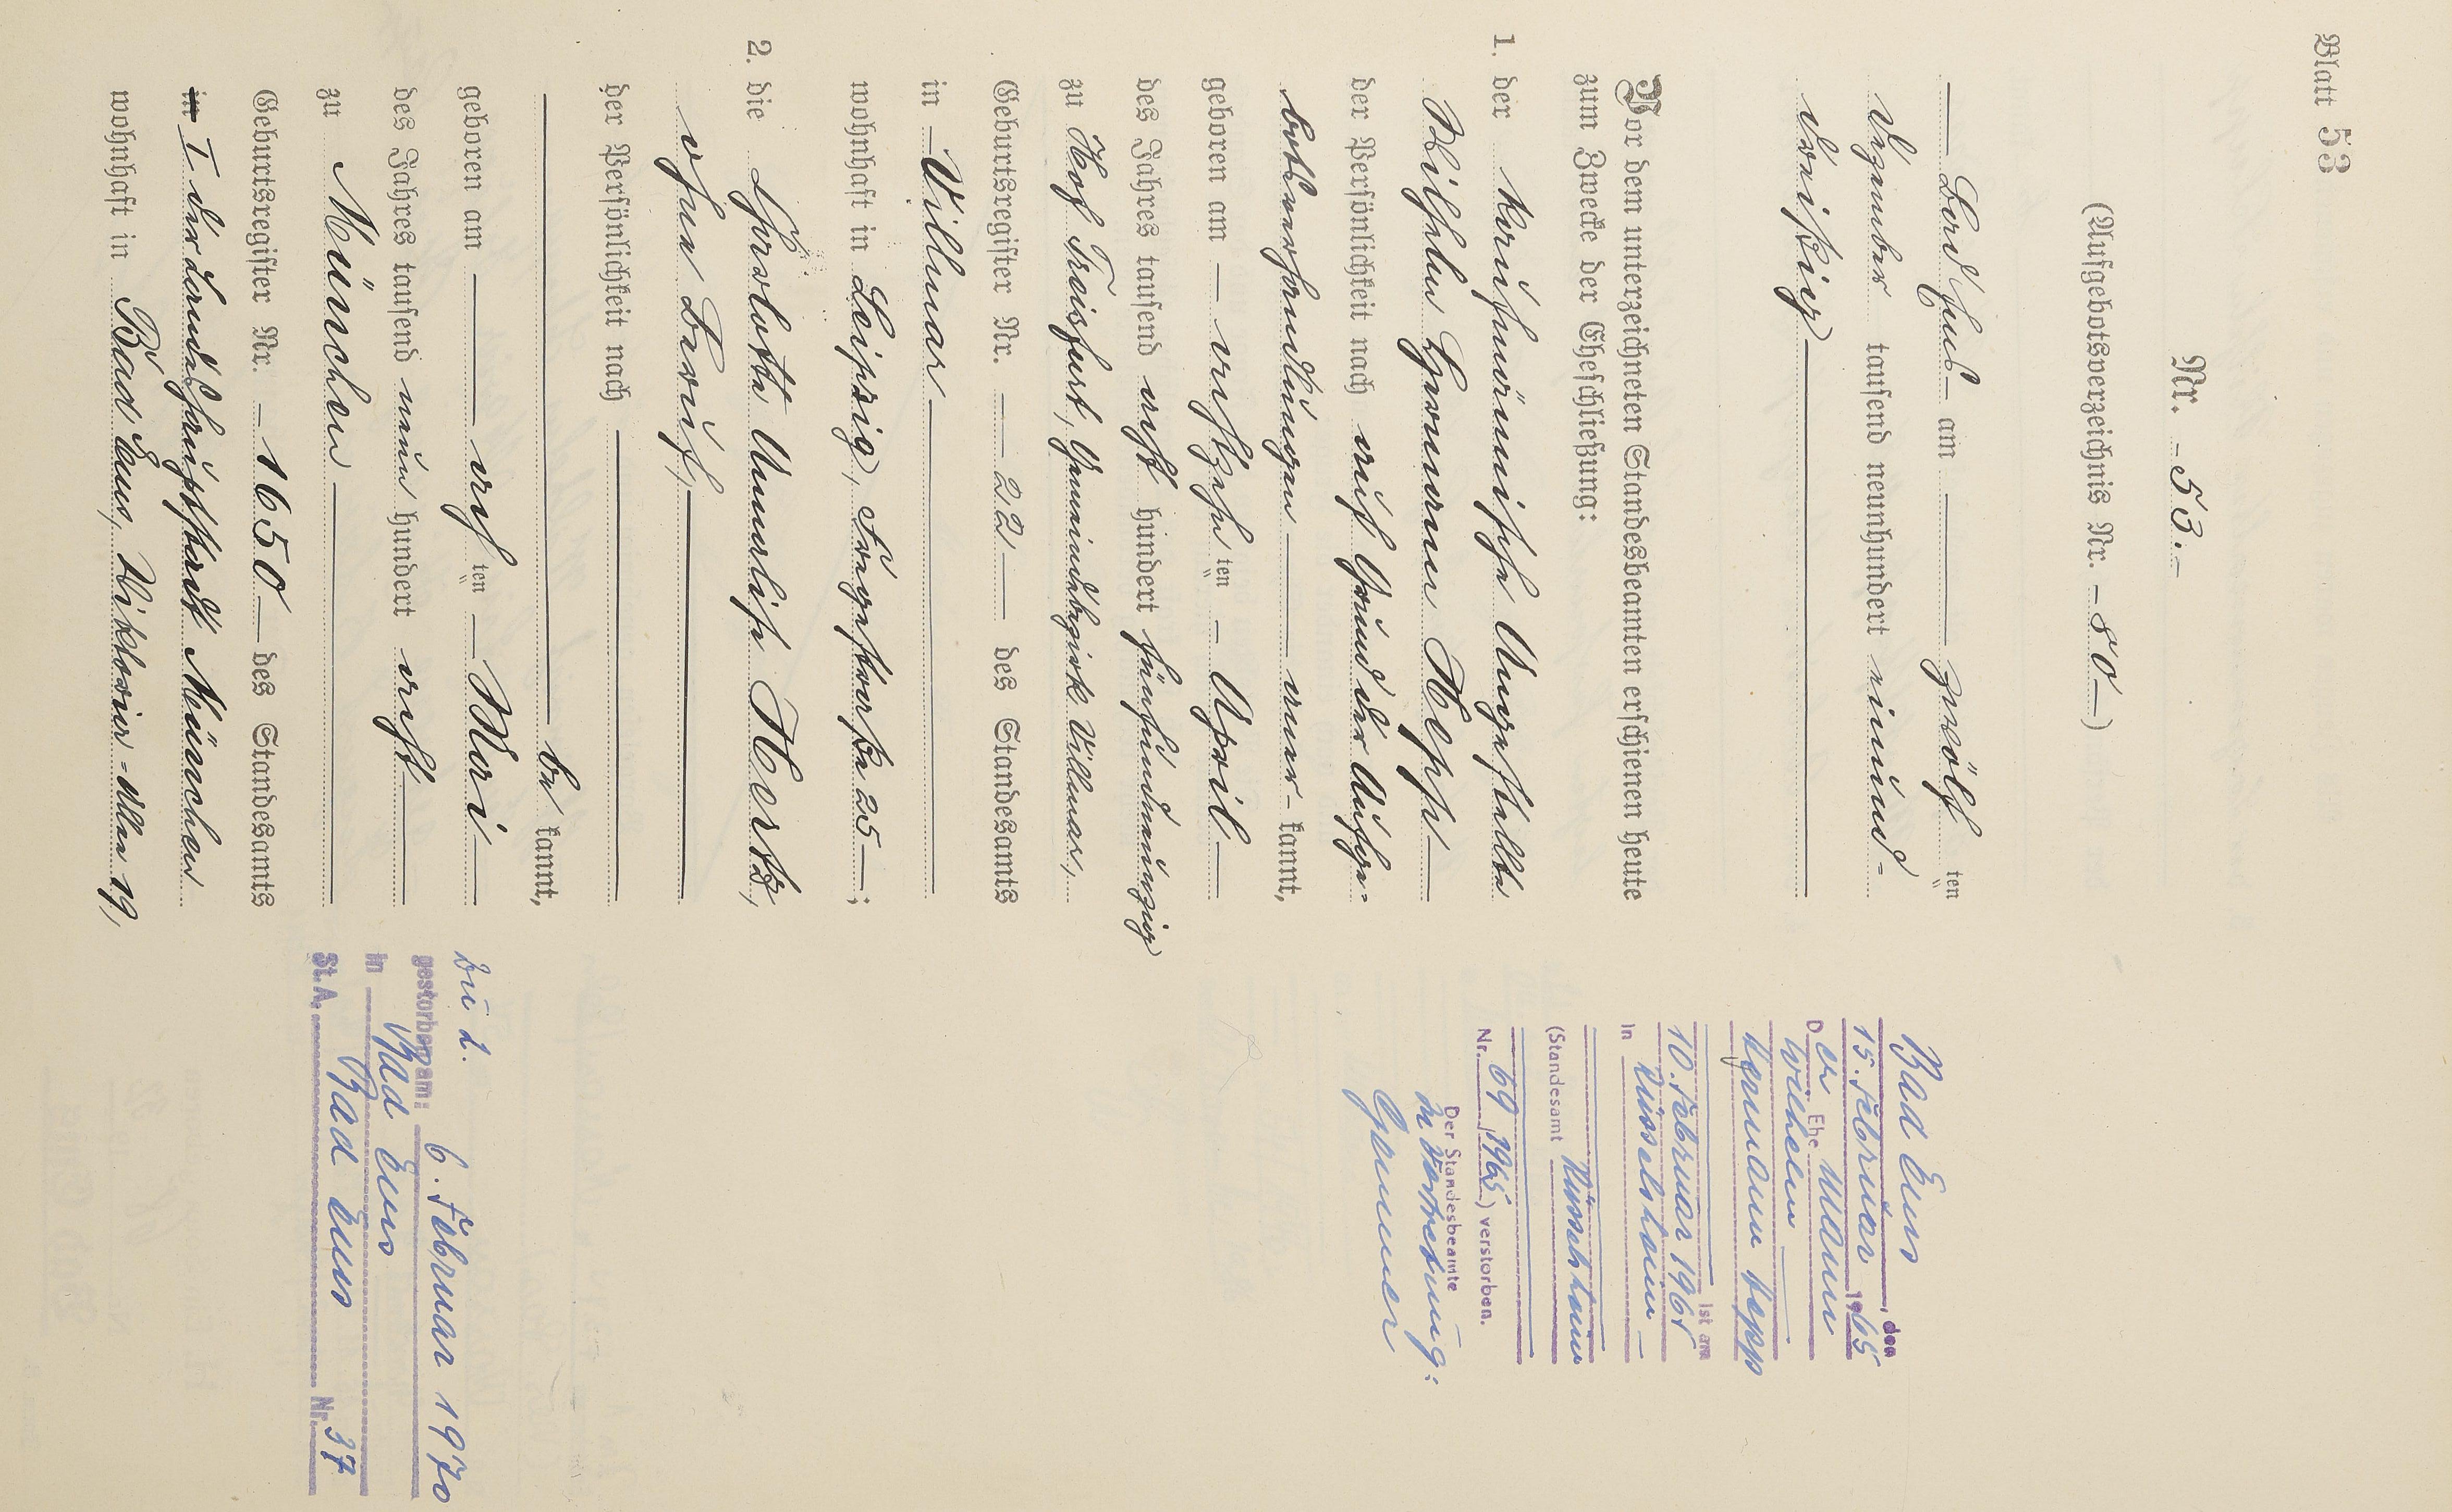 Blatt 53
Nr. – 53. –
(Aufgebotsverzeichnis Nr. – 80 –)
Bad Ems am zwölf ten
Dezember tausend neunhundert einund-
dreißig
Vor dem unterzeichneten Standesbeamten erschienen heute
zum Zwecke der Eheschließung:
1. der kaufmännische Angestellte
Wilhelm Hermann Hepp
der Persönlichkeit nach auf Grund der Aufge-
botsverhandlungen aner- kannt,
geboren am – achtzehn ten – April
des Jahres tausend acht hundert fünfundneunzig
zu Hof Traisfurt, Gemeindebezirk Villmar,
Geburtsregister Nr. 22 des Standesamts
in – Villmar
wohnhaft in Leipzig, Fregestraße 25 ;
2. die Charlotte Annelise Hertz,
ohne Beruf,
der Persönlichkeit nach
be kannt,
geboren am ten – Mai
des Jahres tausend neun hundert acht
zu München
Geburtsregister Nr. – 1650 – des Standesamts
in I der Landeshauptstadt München
wohnhaft in Bad Ems, Viktoria-Allee 19,
Bad Ems, den
15. Februar 1965
Der Ehemann
Wilhelm
Hermann Hepp ist am
10. Februar 1965
in Rüsselsheim –
(Standesamt Rüsselsheim
Nr. 69/1965) verstorben.
Der Standesbeamte
In Vertretung:
Zu 2.
gestorben am: 6. Februar 1970
in Bad Ems
St.A. Bad Ems Nr. 37